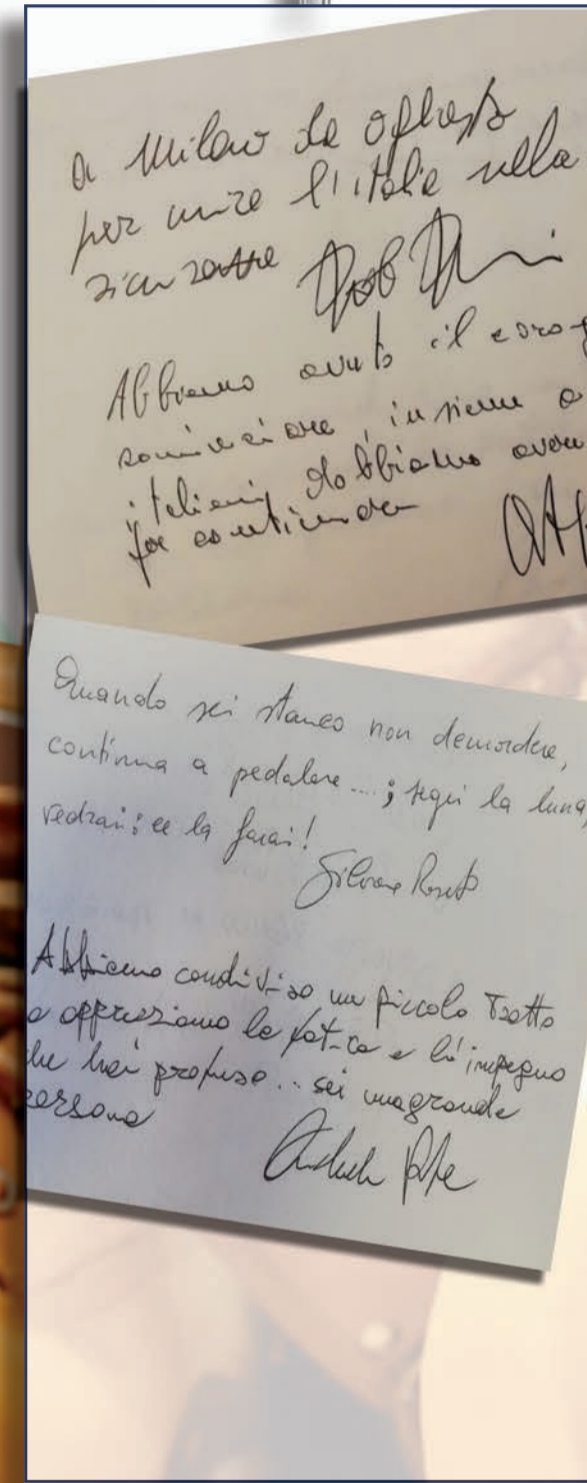 a Milano da
per unire l'italia nella
sicurezza
Abbiamo avuto il corag
cominciare, insieme a
italiani, dobbiamo avere
per continuare
Quando sei stanco non demordere,
continua a pedalare...; segui la luna,
vedrai: ce la farai!
Silvano
Abbiamo condiviso un piccolo Tratto
e apprezziamo la fatica e l'impegno
che hai profuso.. sei una grande
persona